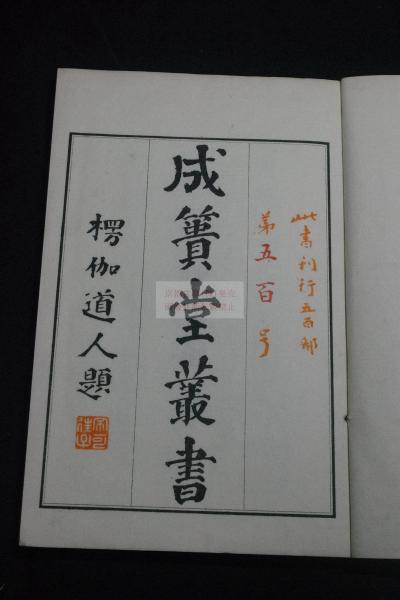 此書刊行五百部
第五百号
成簣堂叢書
楞伽道人題